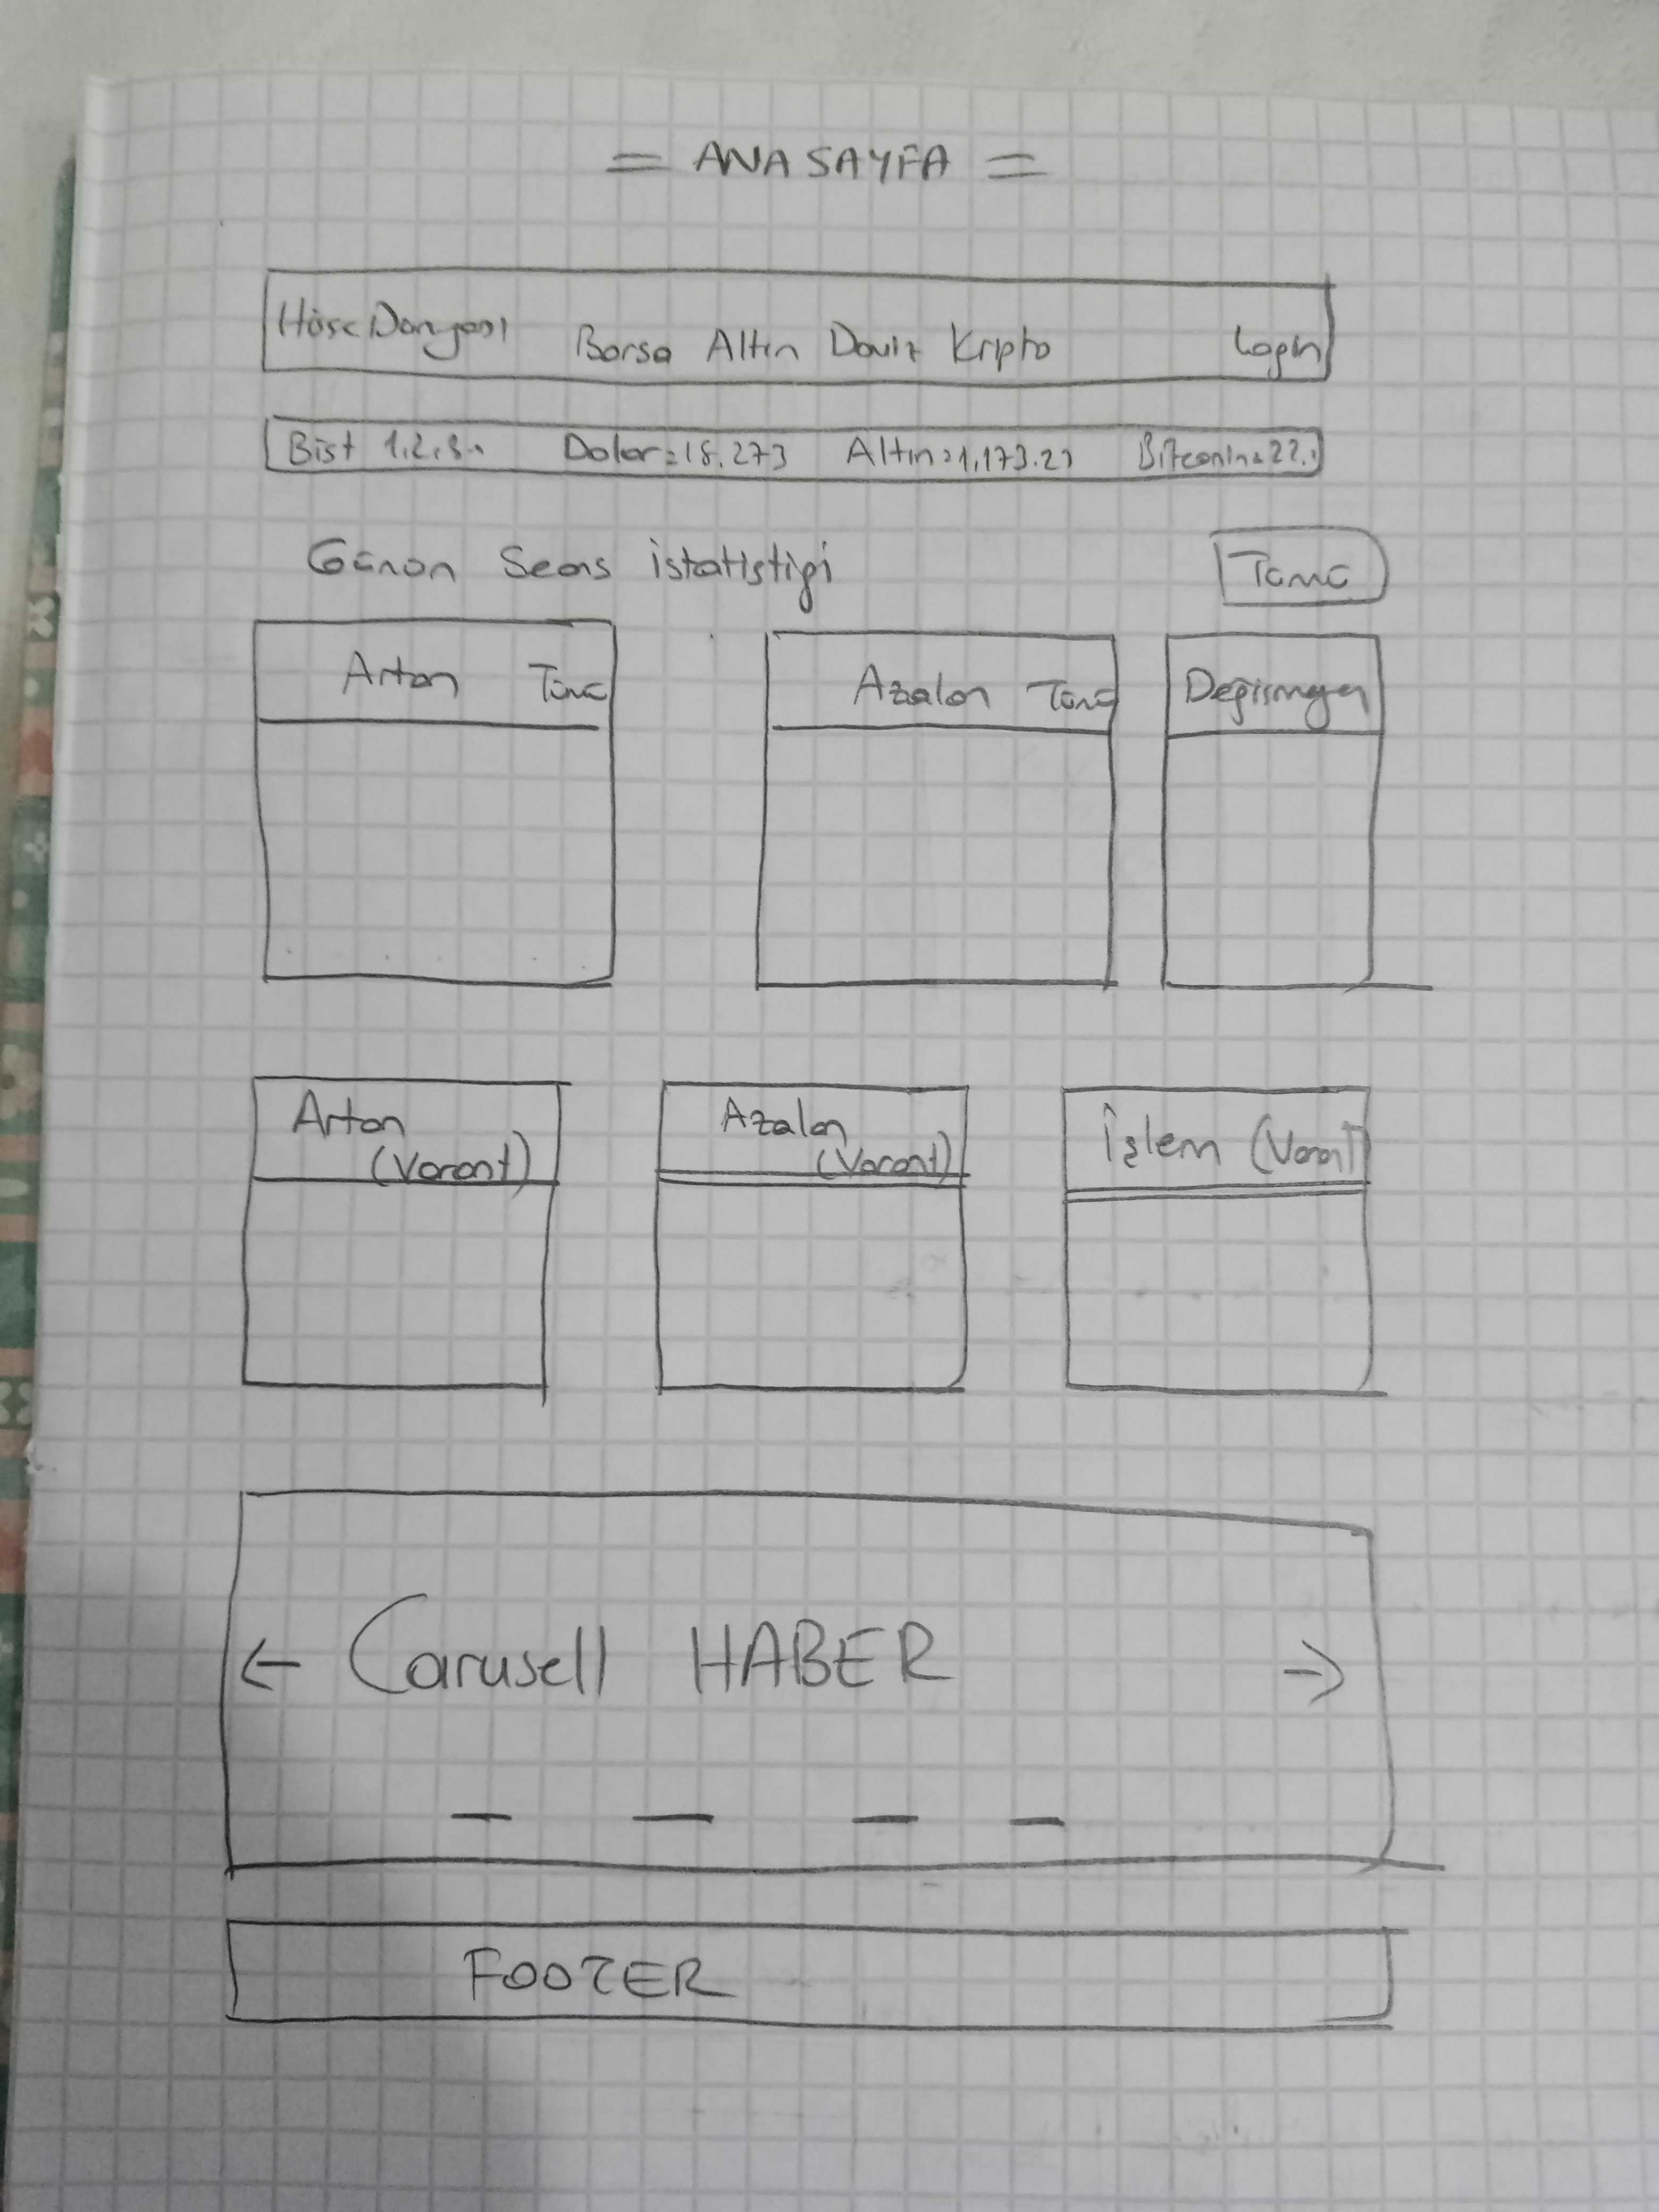 = ANASAYFA =
Hisse Dünyası Borsa Altın Döviz Kripto Login
Bist 1.2.3.. Dolar=18.273 Altın=1,173.21 Bitcoin=22.
Günün Seans istatistiği Tümü
Artan Tümü Azalan Tümü Değişmeyen
Artan (Varant) Azalan (Varant) İşlem (Varant)
← Carusell HABER →
FOOTER